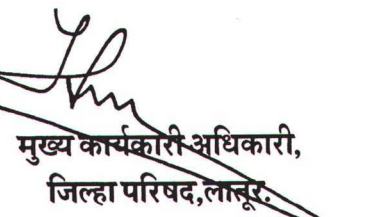 मुख्य कार्यकारी अधिकारी,
जिल्हा परिषद,लातूर.